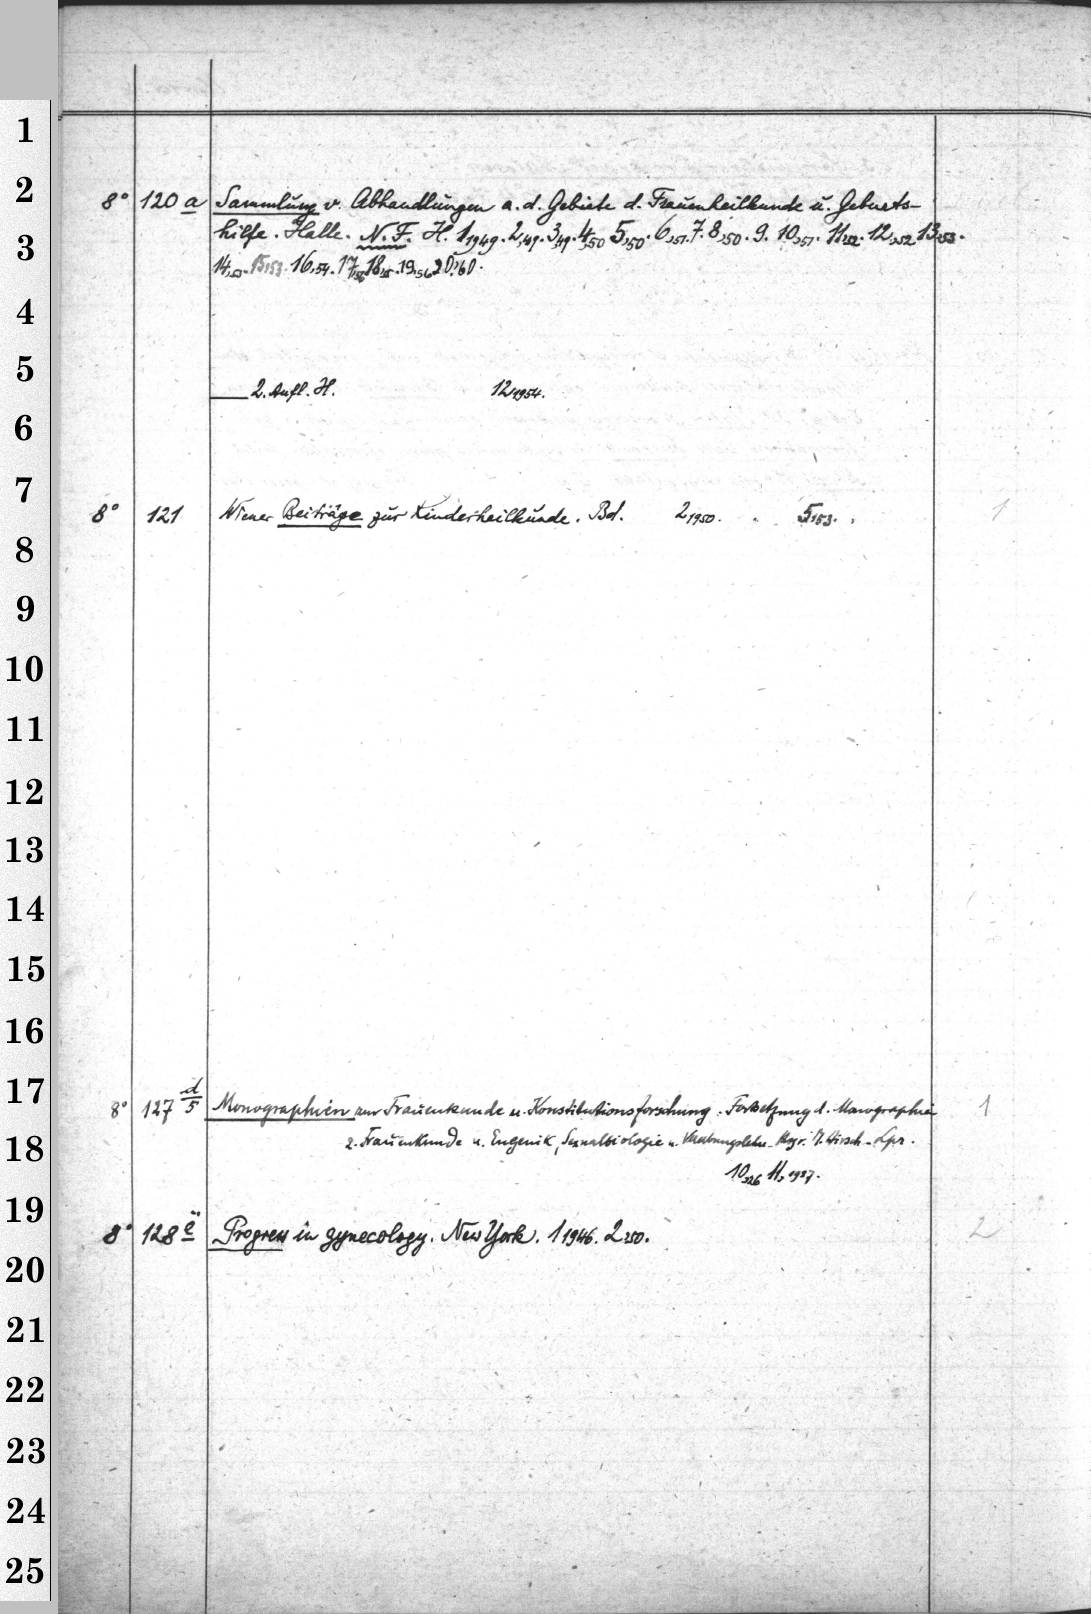 1
2
8° 120 a Sammlung v. Abhandlungen a. d. Gebiete d. Frauenheilkunde u. Geburts-
3
hilfe. Halle. N. F. H. 1,1949. 2,49. 3,49. 4,50 5,50. 6,51. 7. 8,50. 9. 10,51. 11,52. 12,52 13,53.
14,53. 15,53. 16,54. 17,56 18,55. 19,56 20,60.
4
5
2. Aufl. H. 12,1954.
6
7
8° 121 Wiener Beiträge zur Kinderheilkunde. Bd. 2,1950. 5,53. 1
8
9
10
11
12
13
14
15
16
17
8° 127 d/5 Monographien zur Frauenkunde u. Konstitutionsforschung. Fortsetzung d. Monographien 1
18
z. Frauenkunde u. Eugenik, Sexualbiologie u. Vererbungslehre. Hsgr. M. Hirsch - Lpz.
10,26 11,1927.
19
8° 128 ë Progress in gynecology. New York. 1 1946. 2,50. 2
20
21
22
23
24
25